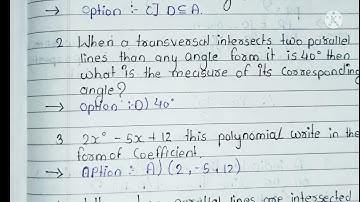 → Option :- C] D⊆A.
2 When a transversal intersects two parallel
lines than any angle form it is 40° then
what is the measure of its corresponding
angle?
→ option :-D) 40°
3 2x° - 5x + 12 this polynomial write in the
form of Coefficient
→ Option :- A) (2, -5, 12)
lines are intersected